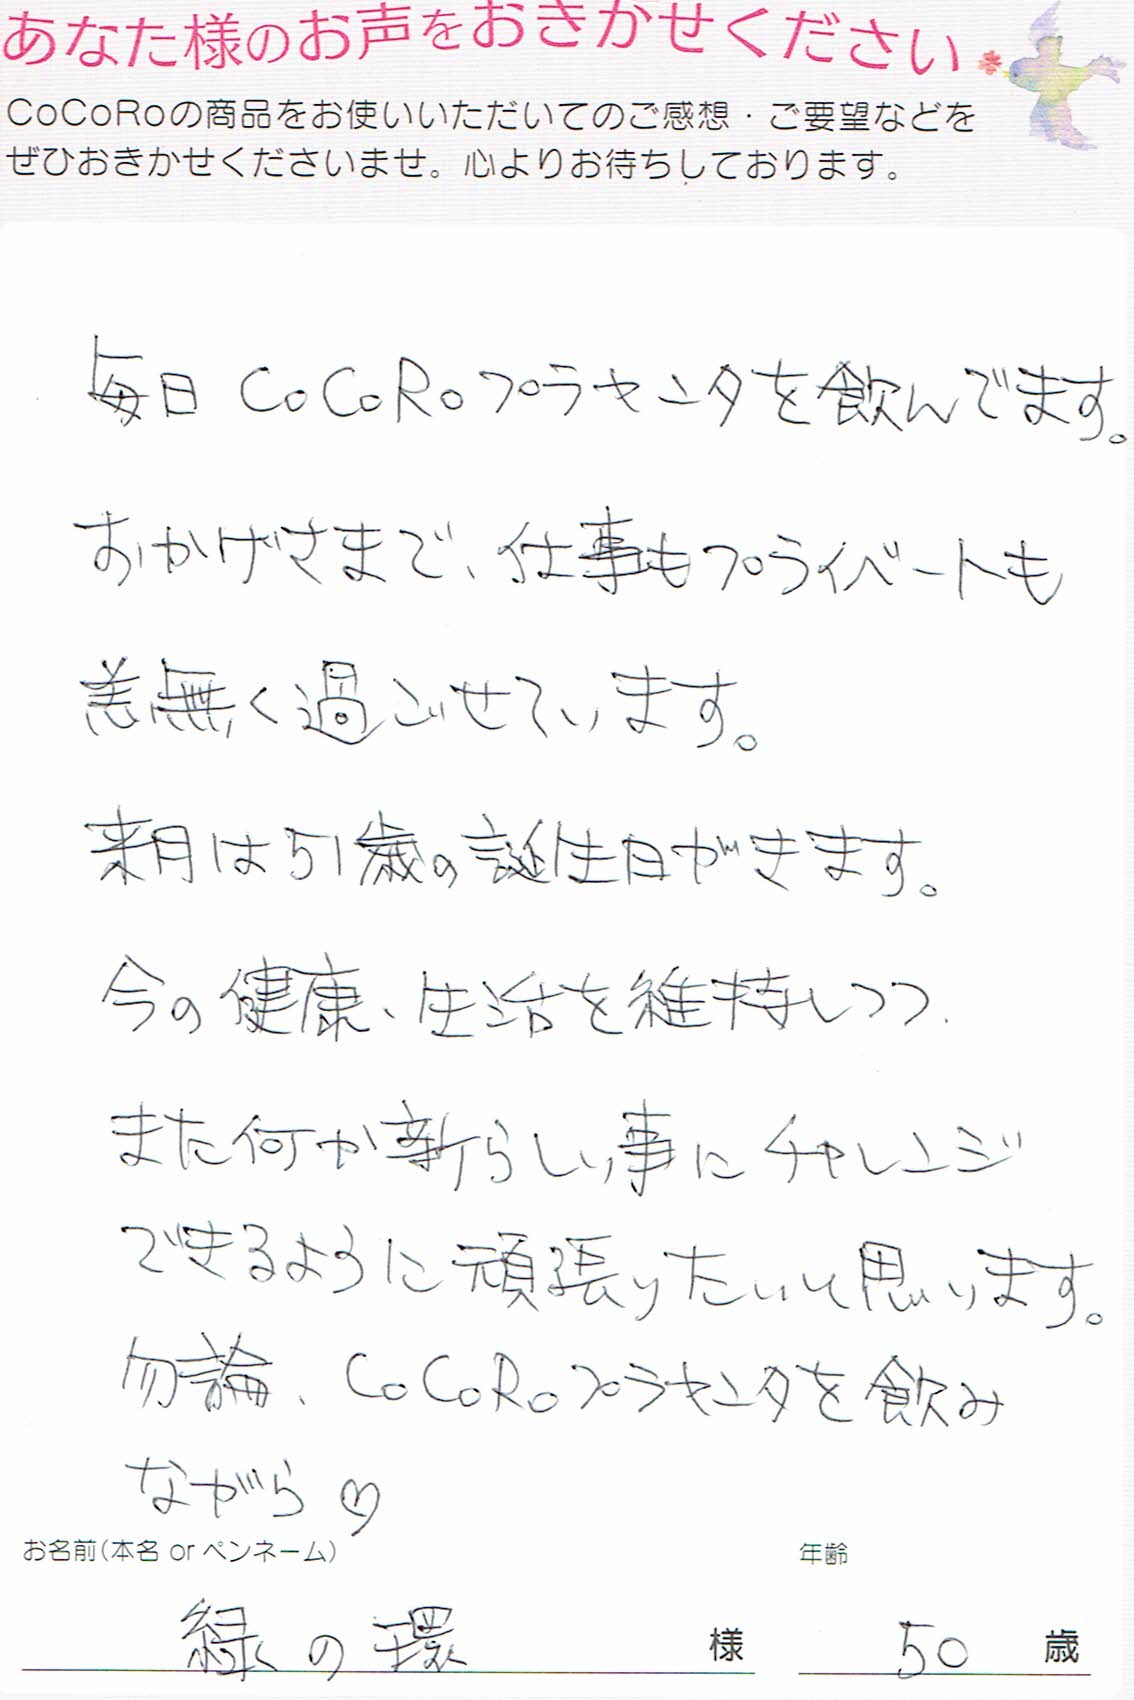 あなた様のお声をおきかせください
CoCoRoの商品をお使いいただいてのご感想・ご要望などを
ぜひおきかせくださいませ。心よりお待ちしております。
毎日CoCoRoプラセンタを飲んでます。
おかげさまで、仕事もプライベートも
恙無く過ごせています。
来月は51歳の誕生日がきます。
今の健康、生活を維持しつつ、
また何か新らしい事にチャレンジ
できるように頑張りたいと思います。
勿論、CoCoRoプラセンタを飲み
ながら♡
お名前(本名 or ペンネーム) 年齢
緑の環 様 50 歳